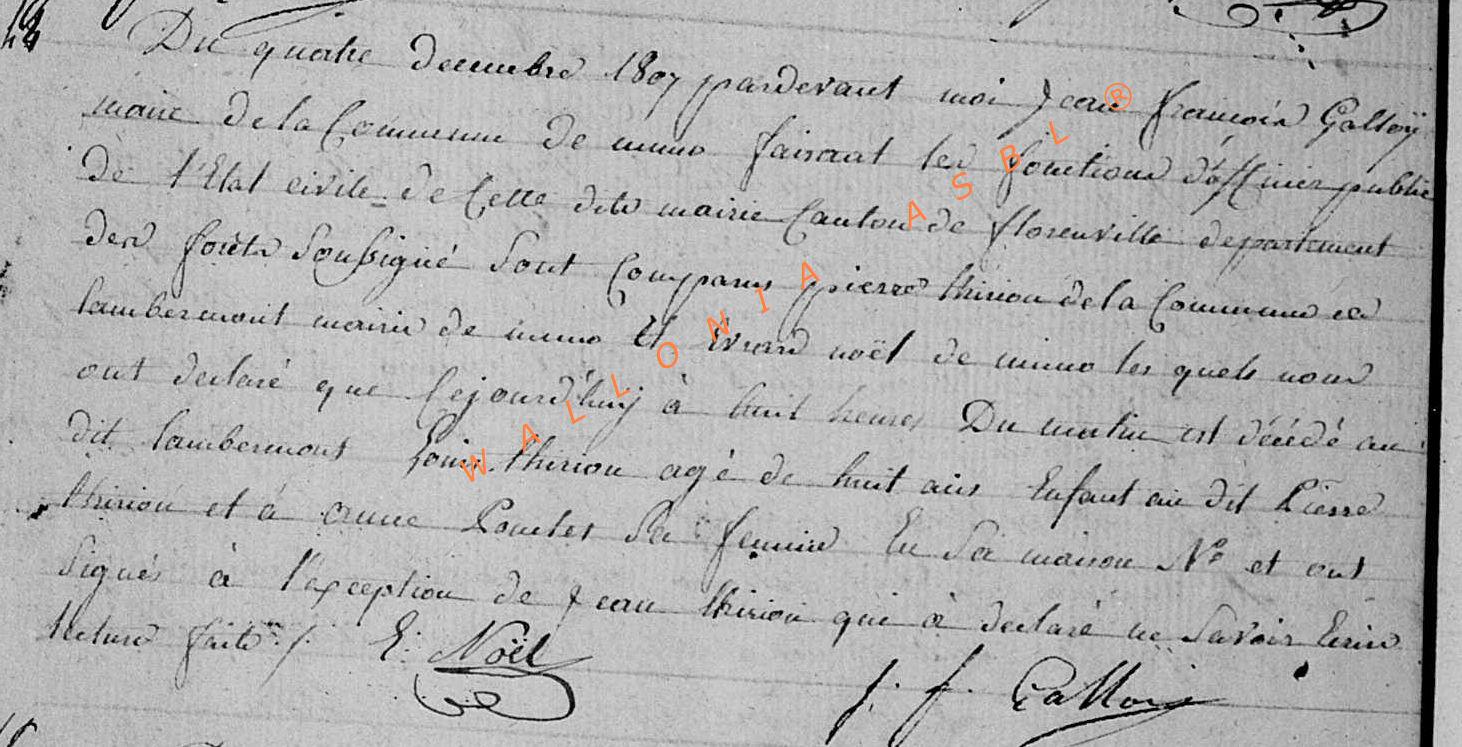 Du quatre decembre 1807 pardevant moi Jean francois Galloÿ
maire de la Commune de muno faisant les fonctions d'officier public
de l'Etat civile de Cette dite mairie Canton de florenville departement
des forêts Soussigné Sont Comparus pierre thiriou de la Commune de
lambermont mairie de muno Et Evrard noël de muno les quels nous
ont declaré que Cejourd'huy à huit heures Du matin est décédé au
dit lambermont Louis thiriou agé de huit ans Enfant au dit Pierre
thiriou et à anne Sa femme En Sa maison N° et ont
Signés à l'exception de Jean thiriou qui à declaré ne Savoir Ecrire
lecture faite /. E: Noël
J. f. Galloy
WALLONIA ASBL ®